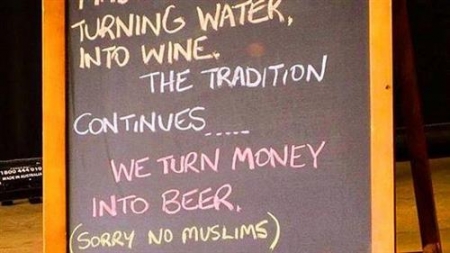 TURNING WATER,
INTO WINE.
THE TRADITION
CONTINUES.....
WE TURN MONEY
INTO BEER.
(SORRY NO MUSLIMS)
1800 444 910
MADE IN AUSTRALIA